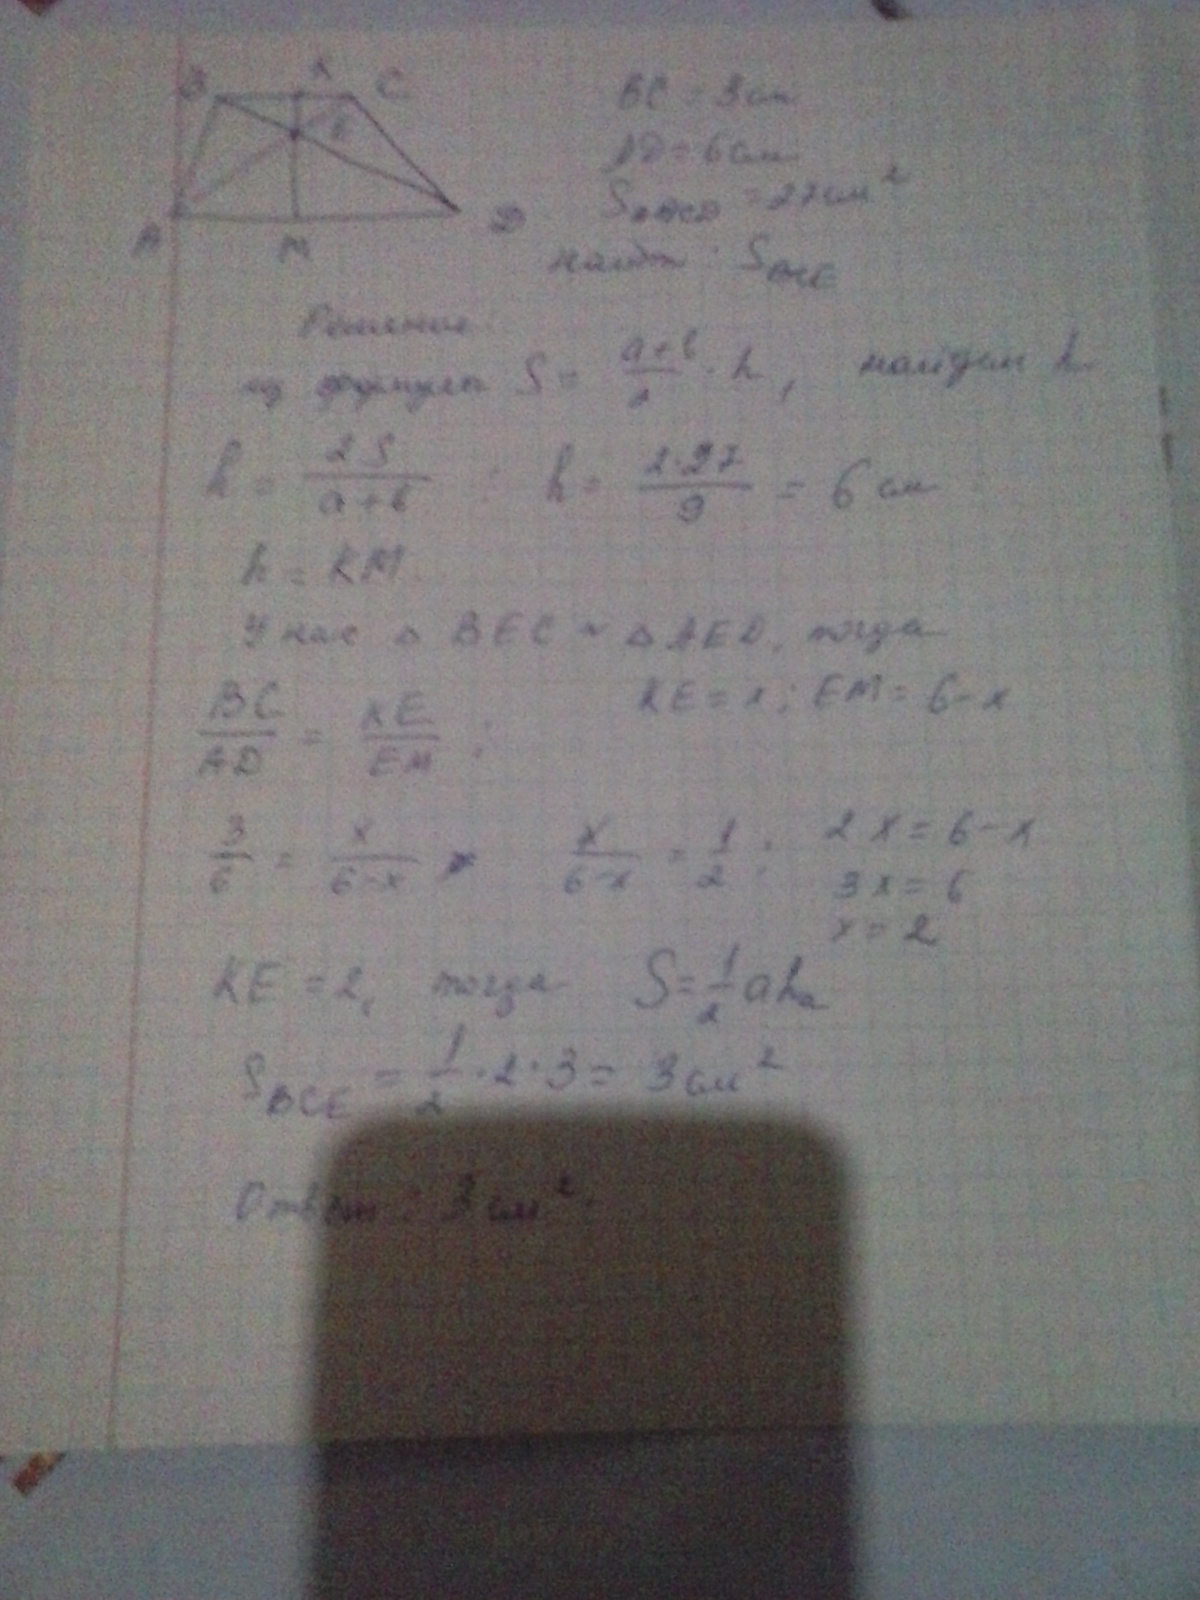 B K C
E
A M D
BC = 3см
AD = 6см
S ABCD = 27см²
найти: S BCE
Решение:
из формулы S = (a+b)/2 · h, найдем h
h = 2S/(a+b) ; h = 2·27/9 = 6 см
h = KM
У нас △ BEC ~ △ AED, тогда
BC/AD = KE/EM ; KE = x ; EM = 6-x
3/6 = x/(6-x) x/(6-x) = 1/2 ; 2x = 6-x
3x = 6
x = 2
KE = 2, тогда S = 1/2 ah a
S BCE = 1/2 · 2 · 3 = 3 см²
Ответ: 3 см².